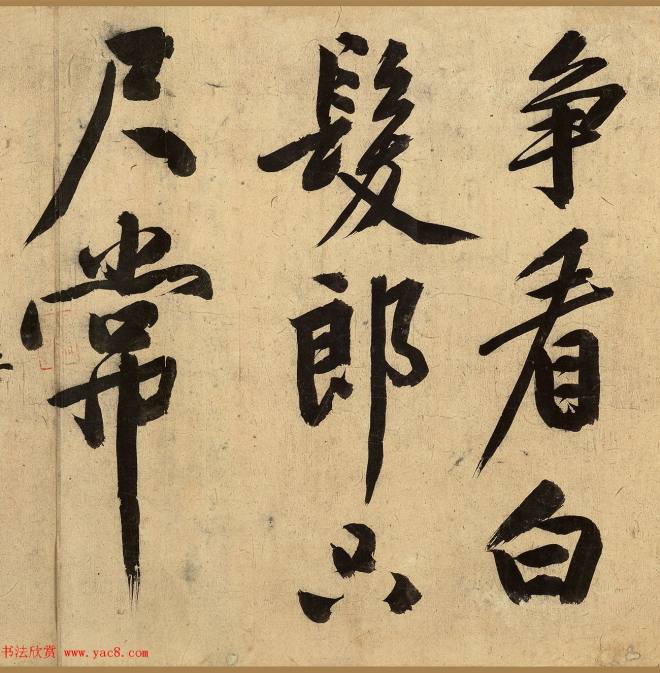 争看白
髮郎只
尺常
书法欣赏 www.yac8.com